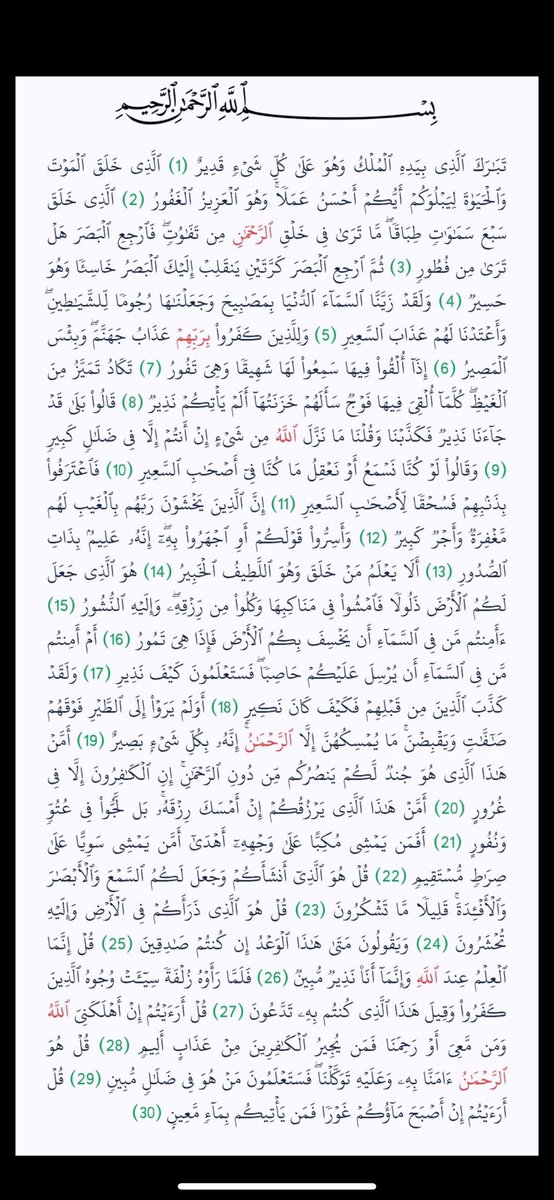 بِسْمِ ٱللَّهِ ٱلرَّحْمَٰنِ ٱلرَّحِيمِ
تَبَٰرَكَ ٱلَّذِى بِيَدِهِ ٱلْمُلْكُ وَهُوَ عَلَىٰ كُلِّ شَىْءٍۢ قَدِيرٌ (1) ٱلَّذِى خَلَقَ ٱلْمَوْتَ
وَٱلْحَيَوٰةَ لِيَبْلُوَكُمْ أَيُّكُمْ أَحْسَنُ عَمَلًۭا ۚ وَهُوَ ٱلْعَزِيزُ ٱلْغَفُورُ (2) ٱلَّذِى خَلَقَ
سَبْعَ سَمَٰوَٰتٍۢ طِبَاقًۭا ۖ مَّا تَرَىٰ فِى خَلْقِ ٱلرَّحْمَٰنِ مِن تَفَٰوُتٍۢ ۖ فَٱرْجِعِ ٱلْبَصَرَ هَلْ
تَرَىٰ مِن فُطُورٍۢ (3) ثُمَّ ٱرْجِعِ ٱلْبَصَرَ كَرَّتَيْنِ يَنقَلِبْ إِلَيْكَ ٱلْبَصَرُ خَاسِئًۭا وَهُوَ
حَسِيرٌۭ (4) وَلَقَدْ زَيَّنَّا ٱلسَّمَآءَ ٱلدُّنْيَا بِمَصَٰبِيحَ وَجَعَلْنَٰهَا رُجُومًۭا لِّلشَّيَٰطِينِ ۖ
وَأَعْتَدْنَا لَهُمْ عَذَابَ ٱلسَّعِيرِ (5) وَلِلَّذِينَ كَفَرُوا۟ بِرَبِّهِمْ عَذَابُ جَهَنَّمَ ۖ وَبِئْسَ
ٱلْمَصِيرُ (6) إِذَآ أُلْقُوا۟ فِيهَا سَمِعُوا۟ لَهَا شَهِيقًۭا وَهِىَ تَفُورُ (7) تَكَادُ تَمَيَّزُ مِنَ
ٱلْغَيْظِ ۖ كُلَّمَآ أُلْقِىَ فِيهَا فَوْجٌۭ سَأَلَهُمْ خَزَنَتُهَآ أَلَمْ يَأْتِكُمْ نَذِيرٌۭ (8) قَالُوا۟ بَلَىٰ قَدْ
جَآءَنَا نَذِيرٌۭ فَكَذَّبْنَا وَقُلْنَا مَا نَزَّلَ ٱللَّهُ مِن شَىْءٍ إِنْ أَنتُمْ إِلَّا فِى ضَلَٰلٍۢ كَبِيرٍۢ
(9) وَقَالُوا۟ لَوْ كُنَّا نَسْمَعُ أَوْ نَعْقِلُ مَا كُنَّا فِىٓ أَصْحَٰبِ ٱلسَّعِيرِ (10) فَٱعْتَرَفُوا۟
بِذَنۢبِهِمْ فَسُحْقًۭا لِّأَصْحَٰبِ ٱلسَّعِيرِ (11) إِنَّ ٱلَّذِينَ يَخْشَوْنَ رَبَّهُم بِٱلْغَيْبِ لَهُم
مَّغْفِرَةٌۭ وَأَجْرٌۭ كَبِيرٌۭ (12) وَأَسِرُّوا۟ قَوْلَكُمْ أَوِ ٱجْهَرُوا۟ بِهِۦٓ ۖ إِنَّهُۥ عَلِيمٌۢ بِذَاتِ
ٱلصُّدُورِ (13) أَلَا يَعْلَمُ مَنْ خَلَقَ وَهُوَ ٱللَّطِيفُ ٱلْخَبِيرُ (14) هُوَ ٱلَّذِى جَعَلَ
لَكُمُ ٱلْأَرْضَ ذَلُولًۭا فَٱمْشُوا۟ فِى مَنَاكِبِهَا وَكُلُوا۟ مِن رِّزْقِهِۦ ۖ وَإِلَيْهِ ٱلنُّشُورُ (15)
ءَأَمِنتُم مَّن فِى ٱلسَّمَآءِ أَن يَخْسِفَ بِكُمُ ٱلْأَرْضَ فَإِذَا هِىَ تَمُورُ (16) أَمْ أَمِنتُم
مَّن فِى ٱلسَّمَآءِ أَن يُرْسِلَ عَلَيْكُمْ حَاصِبًۭا ۖ فَسَتَعْلَمُونَ كَيْفَ نَذِيرِ (17) وَلَقَدْ
كَذَّبَ ٱلَّذِينَ مِن قَبْلِهِمْ فَكَيْفَ كَانَ نَكِيرِ (18) أَوَلَمْ يَرَوْا۟ إِلَى ٱلطَّيْرِ فَوْقَهُمْ
صَٰٓفَّٰتٍۢ وَيَقْبِضْنَ ۚ مَا يُمْسِكُهُنَّ إِلَّا ٱلرَّحْمَٰنُ ۚ إِنَّهُۥ بِكُلِّ شَىْءٍۭ بَصِيرٌ (19) أَمَّنْ
هَٰذَا ٱلَّذِى هُوَ جُندٌۭ لَّكُمْ يَنصُرُكُم مِّن دُونِ ٱلرَّحْمَٰنِ ۚ إِنِ ٱلْكَٰفِرُونَ إِلَّا فِى
غُرُورٍ (20) أَمَّنْ هَٰذَا ٱلَّذِى يَرْزُقُكُمْ إِنْ أَمْسَكَ رِزْقَهُۥ ۚ بَل لَّجُّوا۟ فِى عُتُوٍّۢ
وَنُفُورٍ (21) أَفَمَن يَمْشِى مُكِبًّا عَلَىٰ وَجْهِهِۦٓ أَهْدَىٰٓ أَمَّن يَمْشِى سَوِيًّا عَلَىٰ
صِرَٰطٍۢ مُّسْتَقِيمٍۢ (22) قُلْ هُوَ ٱلَّذِىٓ أَنشَأَكُمْ وَجَعَلَ لَكُمُ ٱلسَّمْعَ وَٱلْأَبْصَٰرَ
وَٱلْأَفْـِٔدَةَ ۖ قَلِيلًۭا مَّا تَشْكُرُونَ (23) قُلْ هُوَ ٱلَّذِى ذَرَأَكُمْ فِى ٱلْأَرْضِ وَإِلَيْهِ
تُحْشَرُونَ (24) وَيَقُولُونَ مَتَىٰ هَٰذَا ٱلْوَعْدُ إِن كُنتُمْ صَٰدِقِينَ (25) قُلْ إِنَّمَا
ٱلْعِلْمُ عِندَ ٱللَّهِ وَإِنَّمَآ أَنَا۠ نَذِيرٌۭ مُّبِينٌۭ (26) فَلَمَّا رَأَوْهُ زُلْفَةًۭ سِيٓـَٔتْ وُجُوهُ ٱلَّذِينَ
كَفَرُوا۟ وَقِيلَ هَٰذَا ٱلَّذِى كُنتُم بِهِۦ تَدَّعُونَ (27) قُلْ أَرَءَيْتُمْ إِنْ أَهْلَكَنِىَ ٱللَّهُ
وَمَن مَّعِىَ أَوْ رَحِمَنَا فَمَن يُجِيرُ ٱلْكَٰفِرِينَ مِنْ عَذَابٍ أَلِيمٍۢ (28) قُلْ هُوَ
ٱلرَّحْمَٰنُ ءَامَنَّا بِهِۦ وَعَلَيْهِ تَوَكَّلْنَا ۖ فَسَتَعْلَمُونَ مَنْ هُوَ فِى ضَلَٰلٍۢ مُّبِينٍۢ (29) قُلْ
أَرَءَيْتُمْ إِنْ أَصْبَحَ مَآؤُكُمْ غَوْرًۭا فَمَن يَأْتِيكُم بِمَآءٍۢ مَّعِينٍۭ (30)